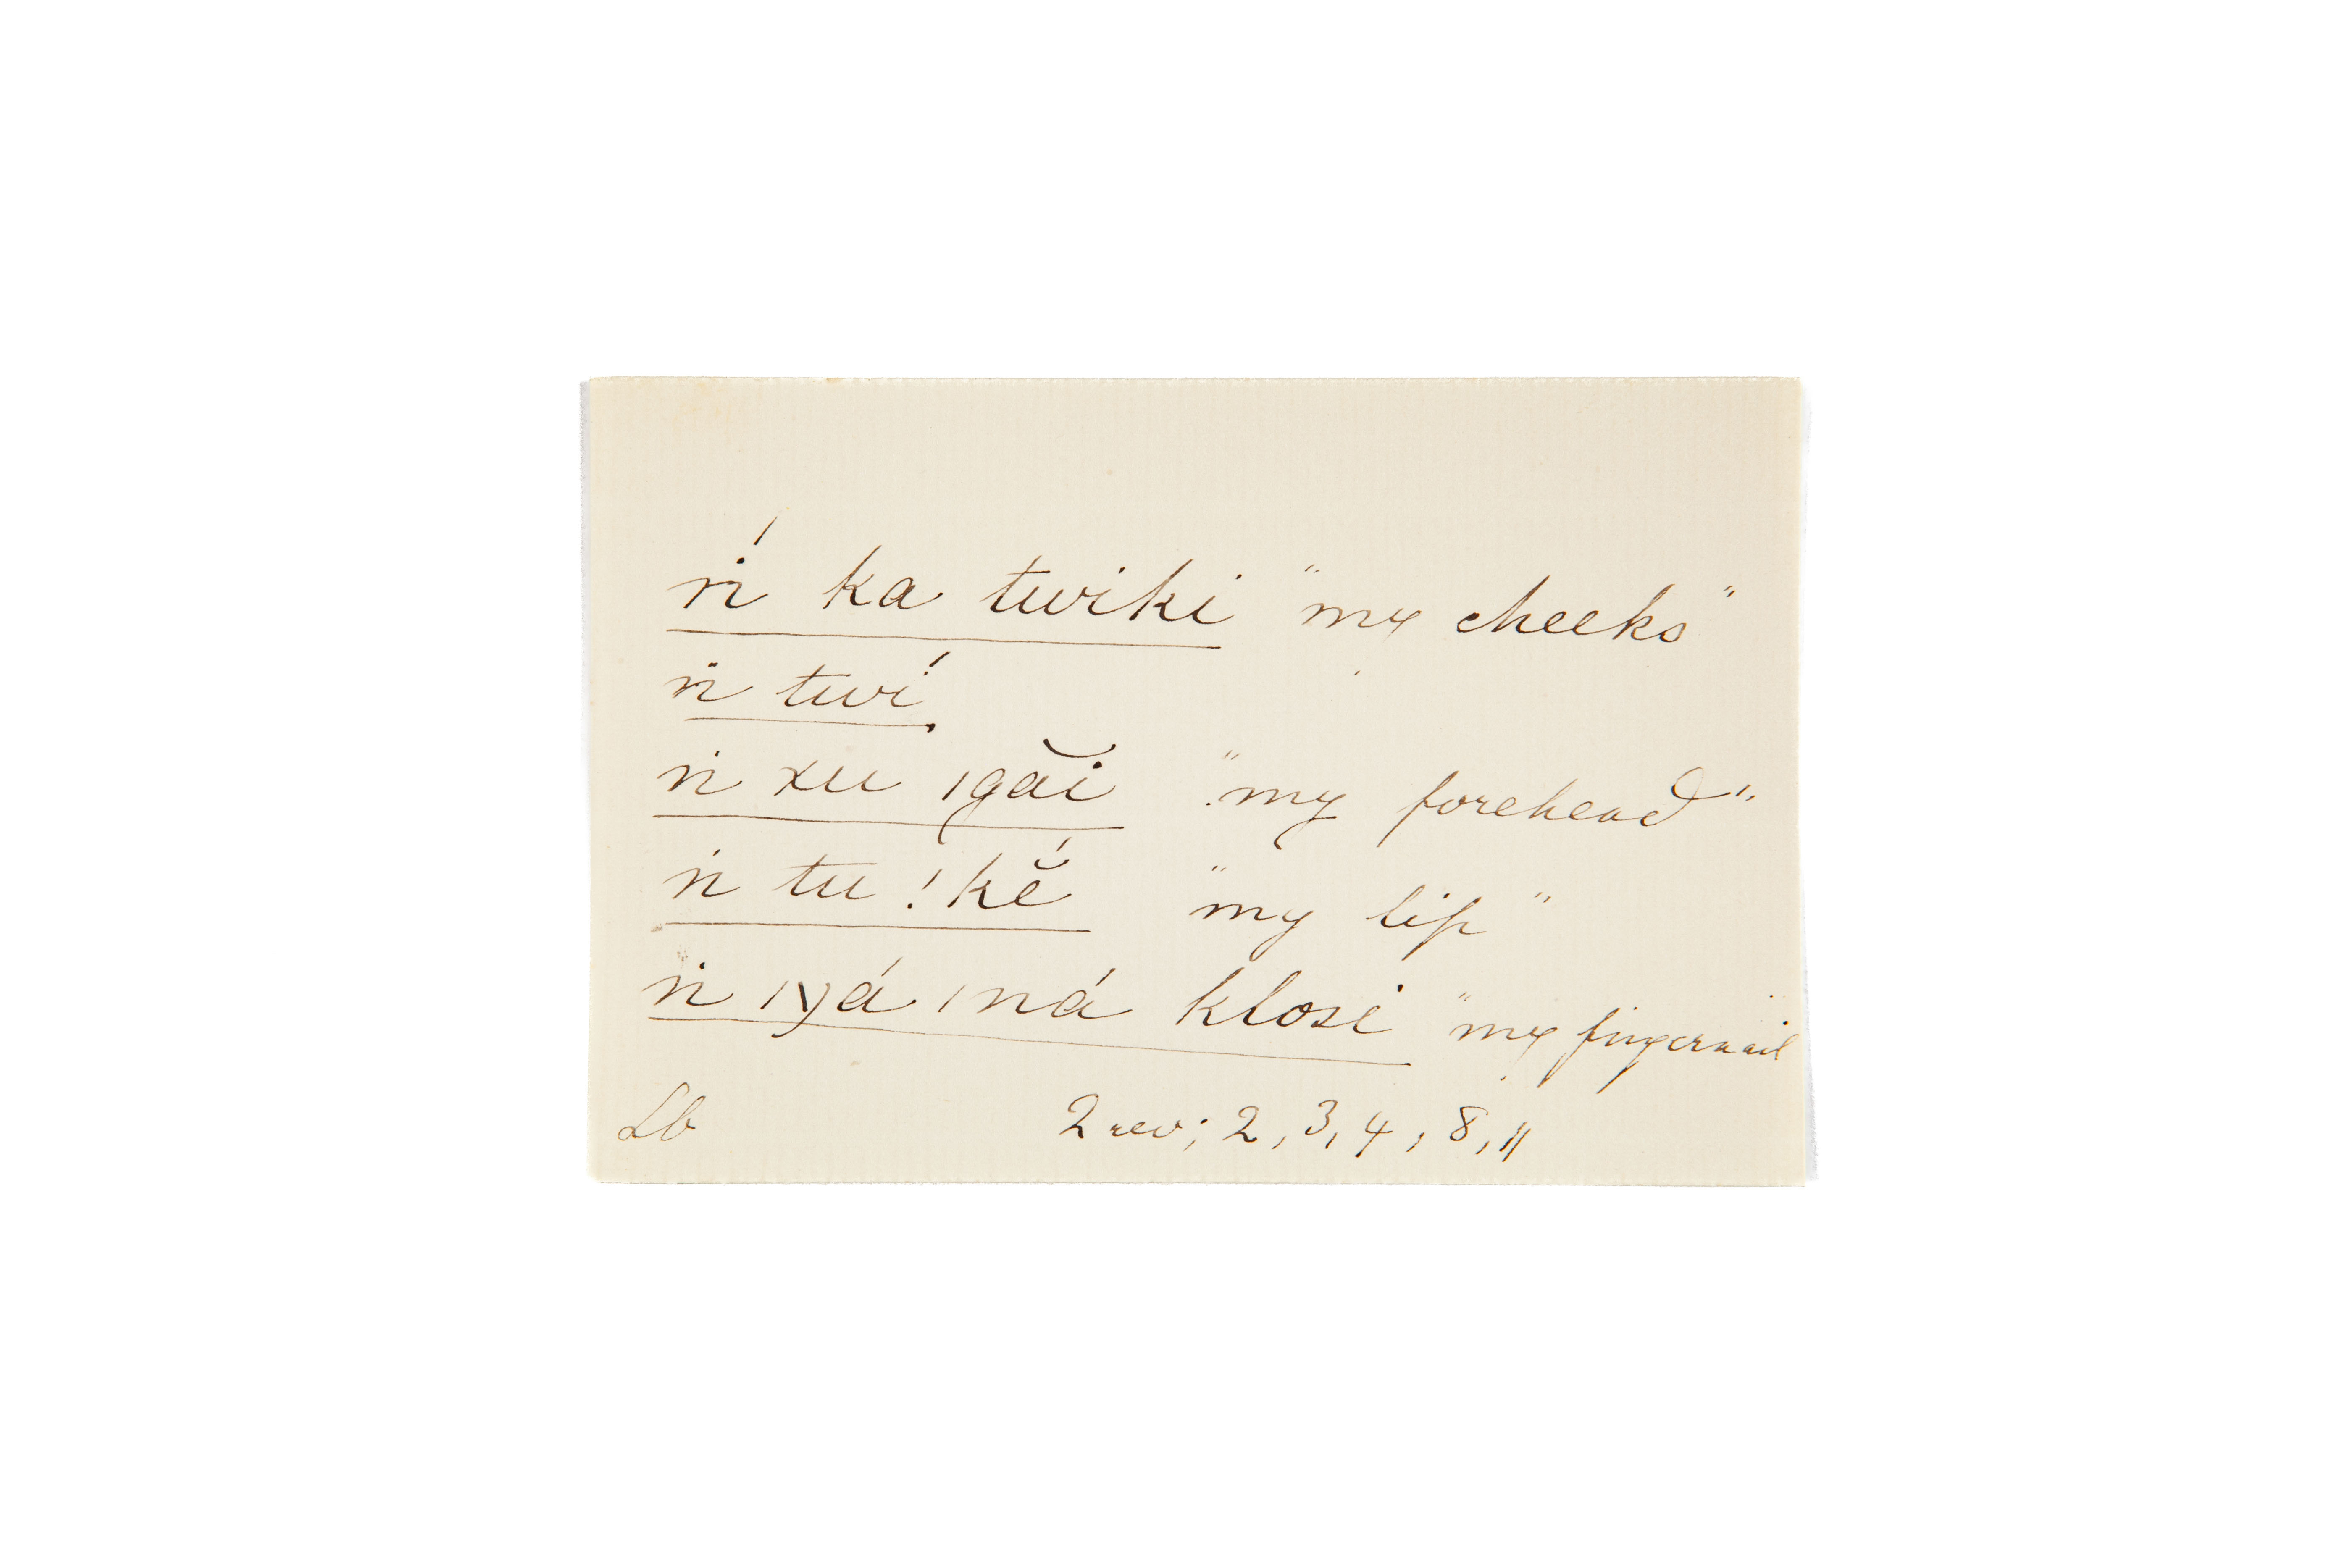 ṅ́ ka twiki "my cheeks"
ṅ twí
ṅ xu ǀgăi "my forehead"
ṅ tu !kĕ́ "my lip"
ṅ ǀɣá ǀná klosi "my fingernail
Lb 2 rev; 2, 3, 4, 8, 11